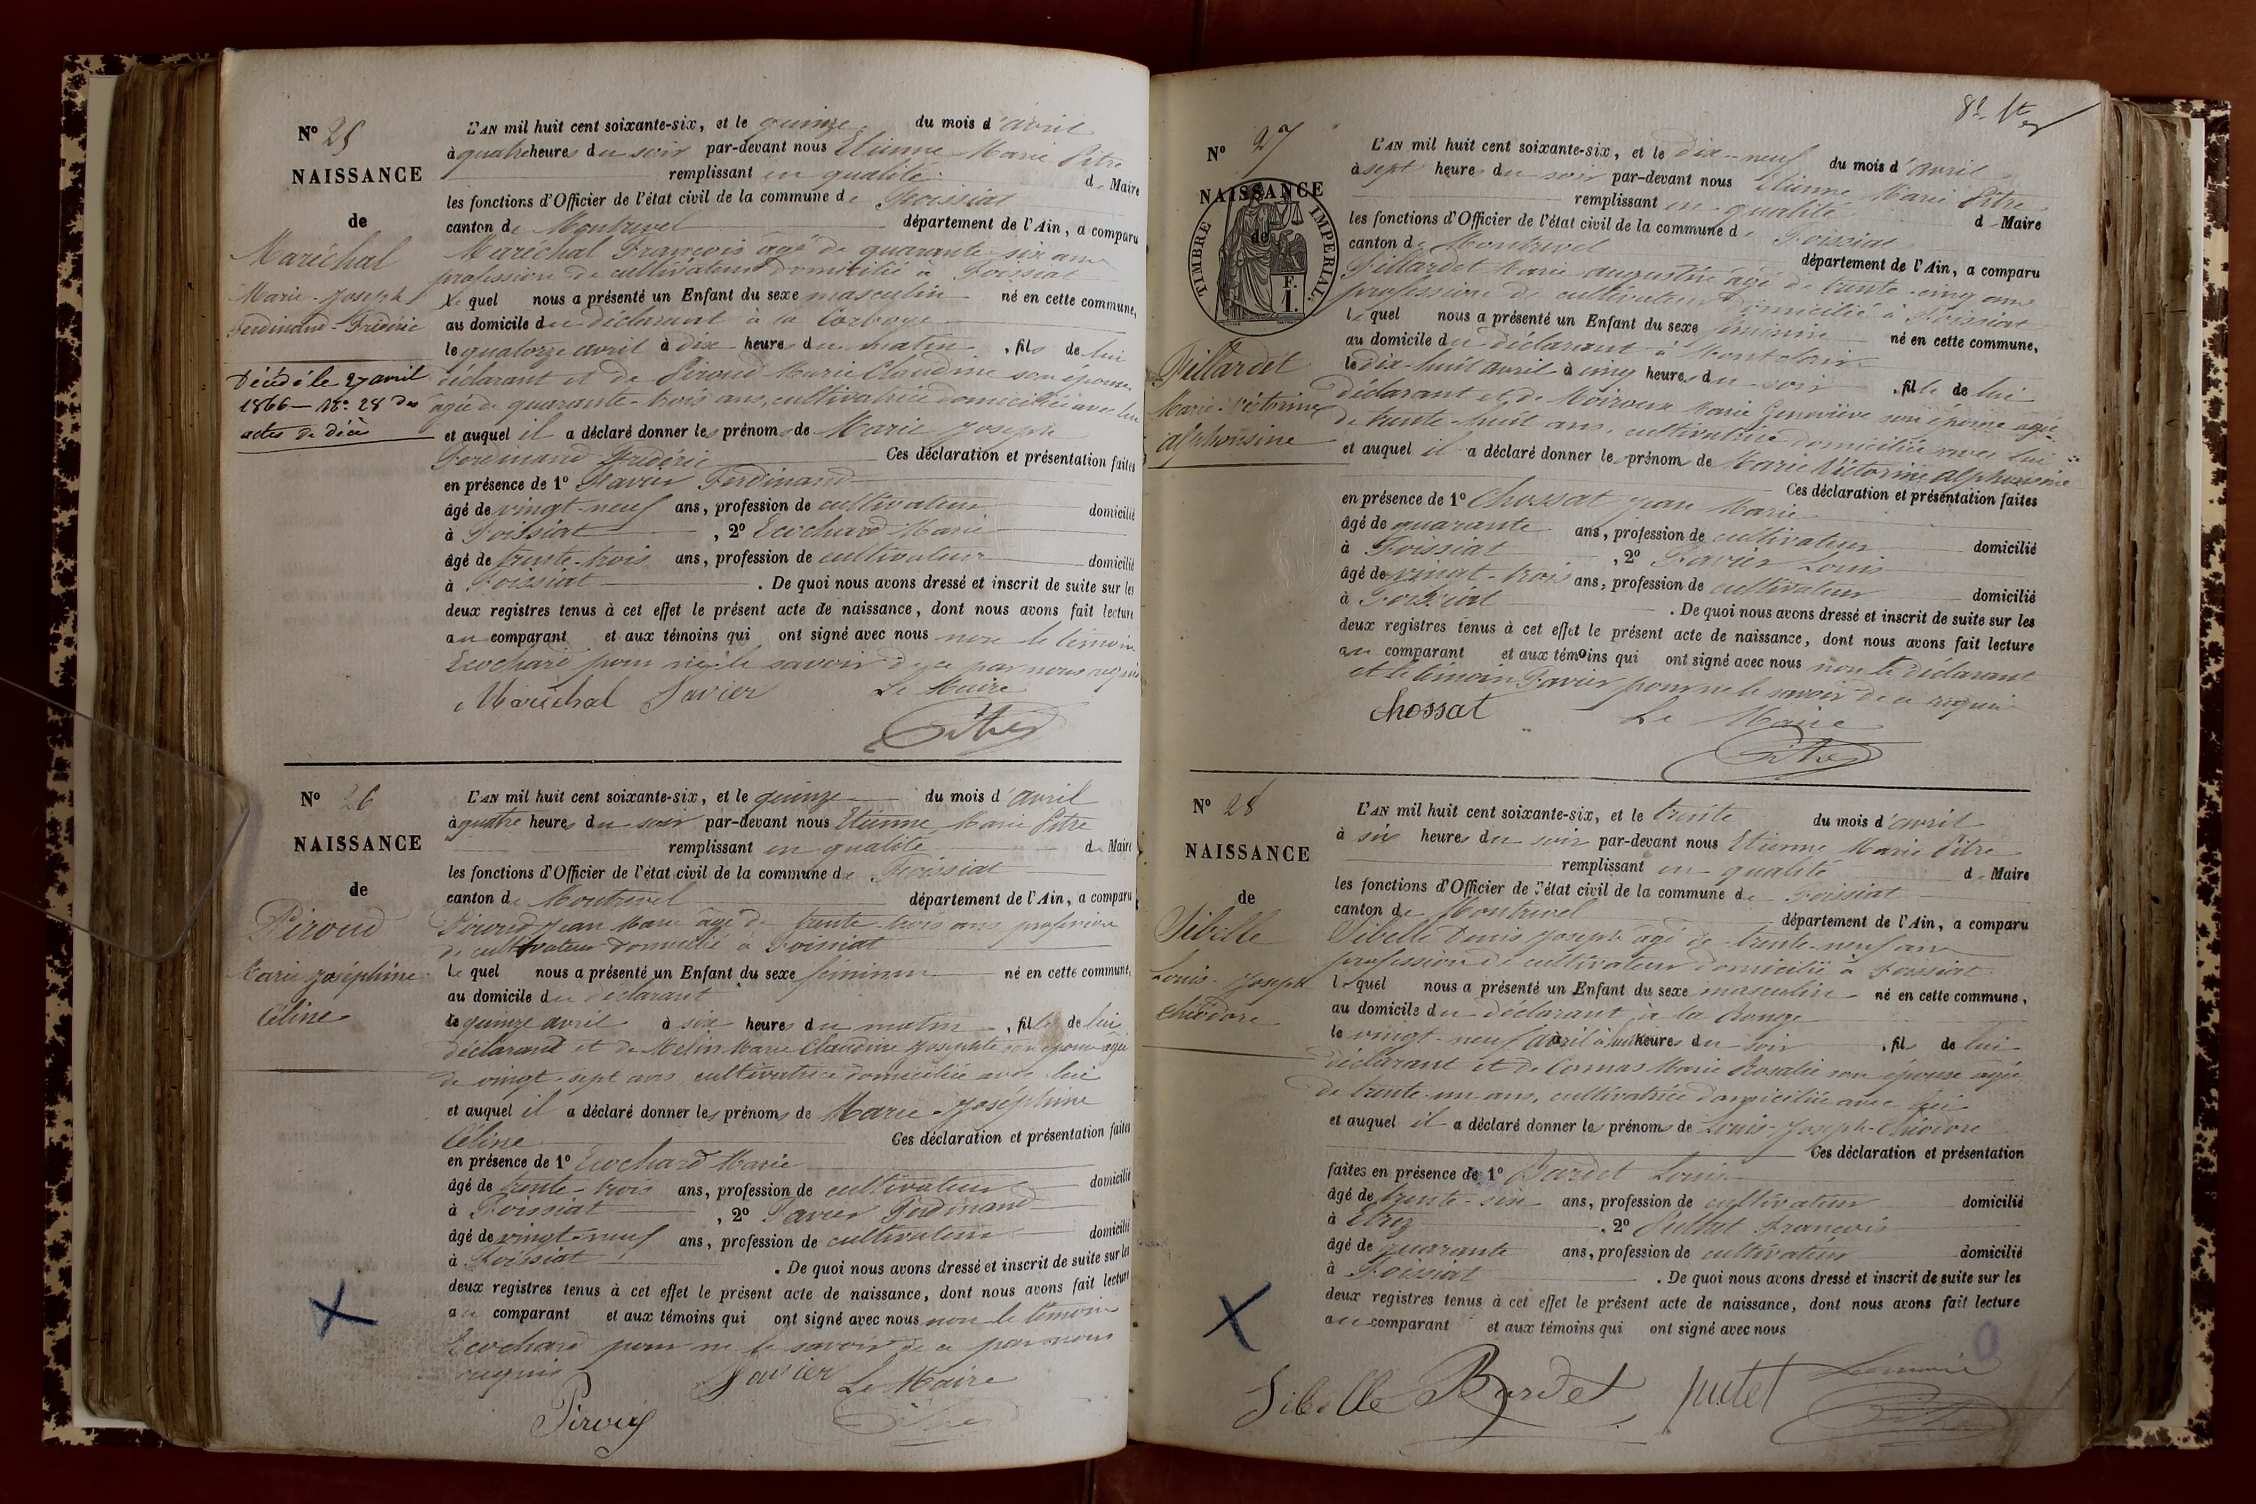 N° 25
NAISSANCE
de
Maréchal
Marie-Joseph
Ferdinand-Frédéric
Décédé le 27 avril
1866 — N° 28 des
actes de décès
L'AN mil huit cent soixante-six, et le quinze du mois d'avril
à quatre heures du soir par-devant nous Etienne Marie Pitre
remplissant en qualité de Maire
les fonctions d'Officier de l'état civil de la commune de Foissiat
canton de Montrevel département de l'Ain, a comparu
Maréchal François âgé de quarante-six ans
profession de cultivateur domicilié à Foissiat
le quel nous a présenté un Enfant du sexe masculin né en cette commune,
au domicile du déclarant à la
le quatorze avril à dix heures du matin, fils de lui
déclarant et de Piroud Marie Claudine son épouse
âgée de quarante-trois ans, cultivatrice domiciliée avec lui
et auquel il a déclaré donner les prénoms de Marie Joseph
Ferdinand Frédéric Ces déclaration et présentation faites
en présence de 1° Favier Ferdinand
âgé de vingt-neuf ans, profession de cultivateur domicilié
à Foissiat, 2° Ecochard Marie
âgé de trente-trois ans, profession de cultivateur domicilié
à Foissiat. De quoi nous avons dressé et inscrit de suite sur les
deux registres tenus à cet effet le présent acte de naissance, dont nous avons fait lecture
au comparant et aux témoins qui ont signé avec nous non le témoin
Ecochard pour ne le savoir de ce par nous requis
Maréchal Favier Le Maire
Pitre
N° 26
NAISSANCE
de
Piroud
Marie Joséphine
Céline
L'AN mil huit cent soixante-six, et le quinze du mois d'avril
à quatre heures du soir par-devant nous Etienne Marie Pitre
remplissant en qualité de Maire
les fonctions d'Officier de l'état civil de la commune de Foissiat
canton de Montrevel département de l'Ain, a comparu
Piroud Jean Marie âgé de trente-trois ans profession
de cultivateur domicilié à Foissiat
le quel nous a présenté un Enfant du sexe féminin né en cette commune,
au domicile du déclarant
le quinze avril à six heures du matin, fille de lui
déclarant et de Melin Marie Claudine Josephte son épouse âgée
de vingt-sept ans, cultivatrice domiciliée avec lui
et auquel il a déclaré donner les prénoms de Marie-Joséphine
Céline Ces déclaration et présentation faites
en présence de 1° Ecochard Marie
âgé de trente-trois ans, profession de cultivateur domicilié
à Foissiat, 2° Favier Ferdinand
âgé de vingt-neuf ans, profession de cultivateur domicilié
à Foissiat. De quoi nous avons dressé et inscrit de suite sur les
deux registres tenus à cet effet le présent acte de naissance, dont nous avons fait lecture
au comparant et aux témoins qui ont signé avec nous non le témoin
Ecochard pour ne le savoir de ce par nous
requis Favier Le Maire
Piroud Pitre
N° 27
NAISSANCE
de
TIMBRE IMPERIAL.
F.
1.
Fillardet
Marie-Victorine
alphonsine
L'AN mil huit cent soixante-six, et le dix-neuf du mois d'avril
à sept heures du soir par-devant nous Etienne Marie Pitre
remplissant en qualité de Maire
les fonctions d'Officier de l'état civil de la commune de Foissiat
canton de Montrevel département de l'Ain, a comparu
Fillardet Marie augustin âgé de trente-cinq ans
profession de cultivateur domicilié à Foissiat
le quel nous a présenté un Enfant du sexe féminin né en cette commune,
au domicile du déclarant à
le dix-huit avril à cinq heures du soir, fille de lui
déclarant et de Moiroux Marie Geneviève son épouse âgée
de trente-huit ans, cultivatrice domiciliée avec lui
et auquel il a déclaré donner les prénoms de Marie Victorine alphonsine
Ces déclaration et présentation faites
en présence de 1° Chossat Jean Marie
âgé de quarante ans, profession de cultivateur domicilié
à Foissiat, 2° Favier Louis
âgé de vingt-trois ans, profession de cultivateur domicilié
à Foissiat. De quoi nous avons dressé et inscrit de suite sur les
deux registres tenus à cet effet le présent acte de naissance, dont nous avons fait lecture
au comparant et aux témoins qui ont signé avec nous non le déclarant
et le témoin Favier pour ne le savoir de ce requis
Chossat Le Maire
Pitre
N° 28
NAISSANCE
de
Sibelle
Louis-Joseph
théodore
L'AN mil huit cent soixante-six, et le trente du mois d'avril
à six heures du soir par-devant nous Etienne Marie Pitre
remplissant en qualité de Maire
les fonctions d'Officier de l'état civil de la commune de Foissiat
canton de Montrevel département de l'Ain, a comparu
Sibelle Denis Joseph âgé de trente-neuf ans
profession de cultivateur domicilié à Foissiat
le quel nous a présenté un Enfant du sexe masculin né en cette commune,
au domicile du déclarant à la
le vingt-neuf avril à huit heures du soir, fils de lui
déclarant et de Cormas Marie Rosalie son épouse âgée
de trente-un ans, cultivatrice domiciliée avec lui
et auquel il a déclaré donner les prénoms de Louis-Joseph-théodore
Ces déclaration et présentation
faites en présence de 1° Bardet Louis
âgé de trente-six ans, profession de cultivateur domicilié
à Etrez, 2° Puttet François
âgé de quarante ans, profession de cultivateur domicilié
à Foissiat. De quoi nous avons dressé et inscrit de suite sur les
deux registres tenus à cet effet le présent acte de naissance, dont nous avons fait lecture
au comparant et aux témoins qui ont signé avec nous
Sibelle Bardet putet Le maire
Pitre